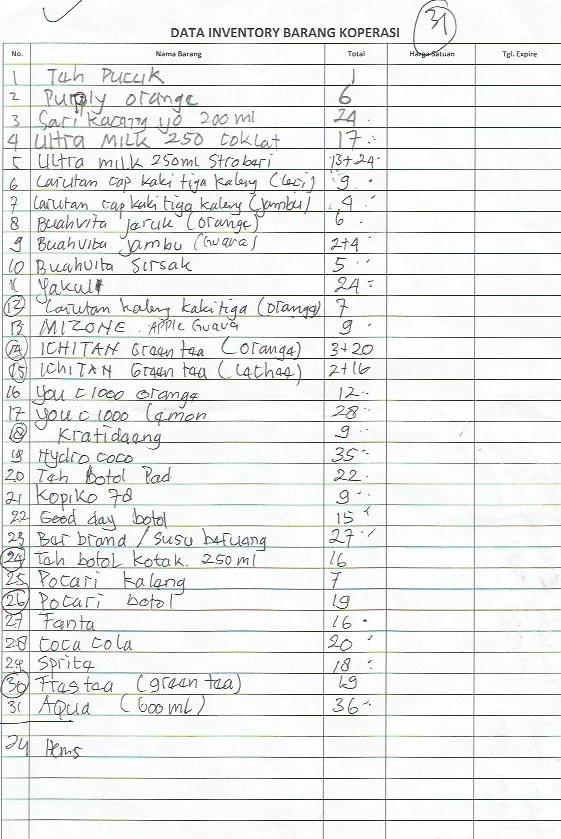 31
DATA INVENTORY BARANG KOPERASI
No. Nama Barang Total Harga Satuan Tgl. Expire
1 Teh Pucuk 1
2 Purply orange 6
3 Sari kacang ijo 200 ml 24
4 Ultra MILK 250 Coklat 17
5 Ultra milk 250ml Stroberi 13+24
6 Larutan cap kaki tiga kaleng (Leci) 9
7 Larutan cap kaki tiga kaleng (jambu) 4
8 Buahvita jeruk (orange) 6
9 Buahvita jambu (Guava) 2+4
10 Buahvita Sirsak 5
11 Yakult 24
12 Larutan kaleng kaki tiga (orange) 7
13 MIZONE Apple Guava 9
14 ICHITAN Green tea (orange) 3+20
15 ICHITAN Green tea (Lechee) 2+16
16 You C 1000 orange 12
17 You C 1000 Lemon 28
18 Kratidaeng 9
19 Hydro coco 35
20 Teh botol Ped 22
21 Kopiko 78 9
22 Good day botol 15
23 Ber brand / Susu beruang 27
24 Teh botol kotak. 250 ml 16
25 Pocari kaleng 7
26 Pocari botol 19
27 Fanta 16
28 Coca cola 20
29 Sprite 18
30 Frestea (green tea) 19
31 AQUA (600 mL) 36
Items